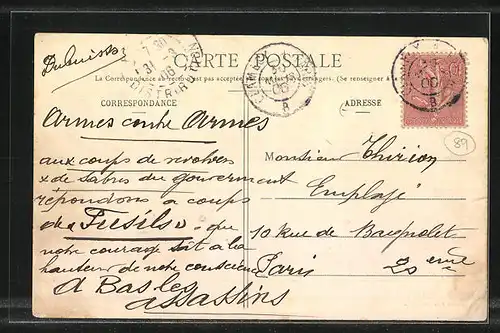 Dubuisson
CARTE POSTALE
La Correspondance au recto n'est pas acceptée par tous les pays étrangers. (Se renseigner à
CORRESPONDANCE
ADRESSE
7 30
31 - 3
06
DISTRIBUTION
8
8
89
Armes contre Armes
aux coups de revolver
& de sabres du gouvernement
répondons a coups
de "Fusils", que
notre courage soit à la
hauteur de notre conscience
A Bas les
assassins
Monsieur Thirion
Employé
10 Rue de Bagnolet
Paris 20 eme